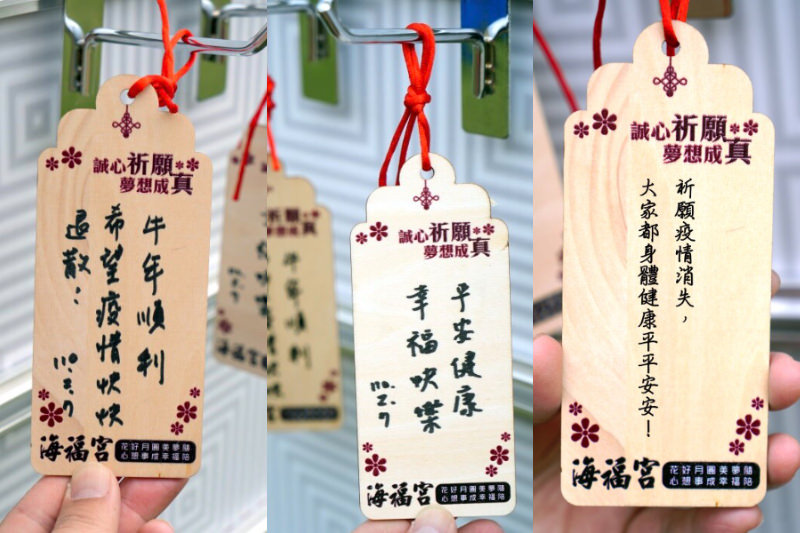 誠心祈願
夢想成真
牛年順利
希望疫情快快
退散：
110.2.7
海福宮
花好月圓美夢隨
心想事成幸福陪
海福宮
祈願
想成真
牛年順利
誠心祈願
夢想成真
平安健康
幸福快樂
110.2.7
海福宮
花好月圓美夢隨
心想事成幸福陪
誠心祈願
夢想成真
祈願疫情消失，
大家都身體健康平平安安！
海福宮
花好月圓美夢隨
心想事成幸福陪